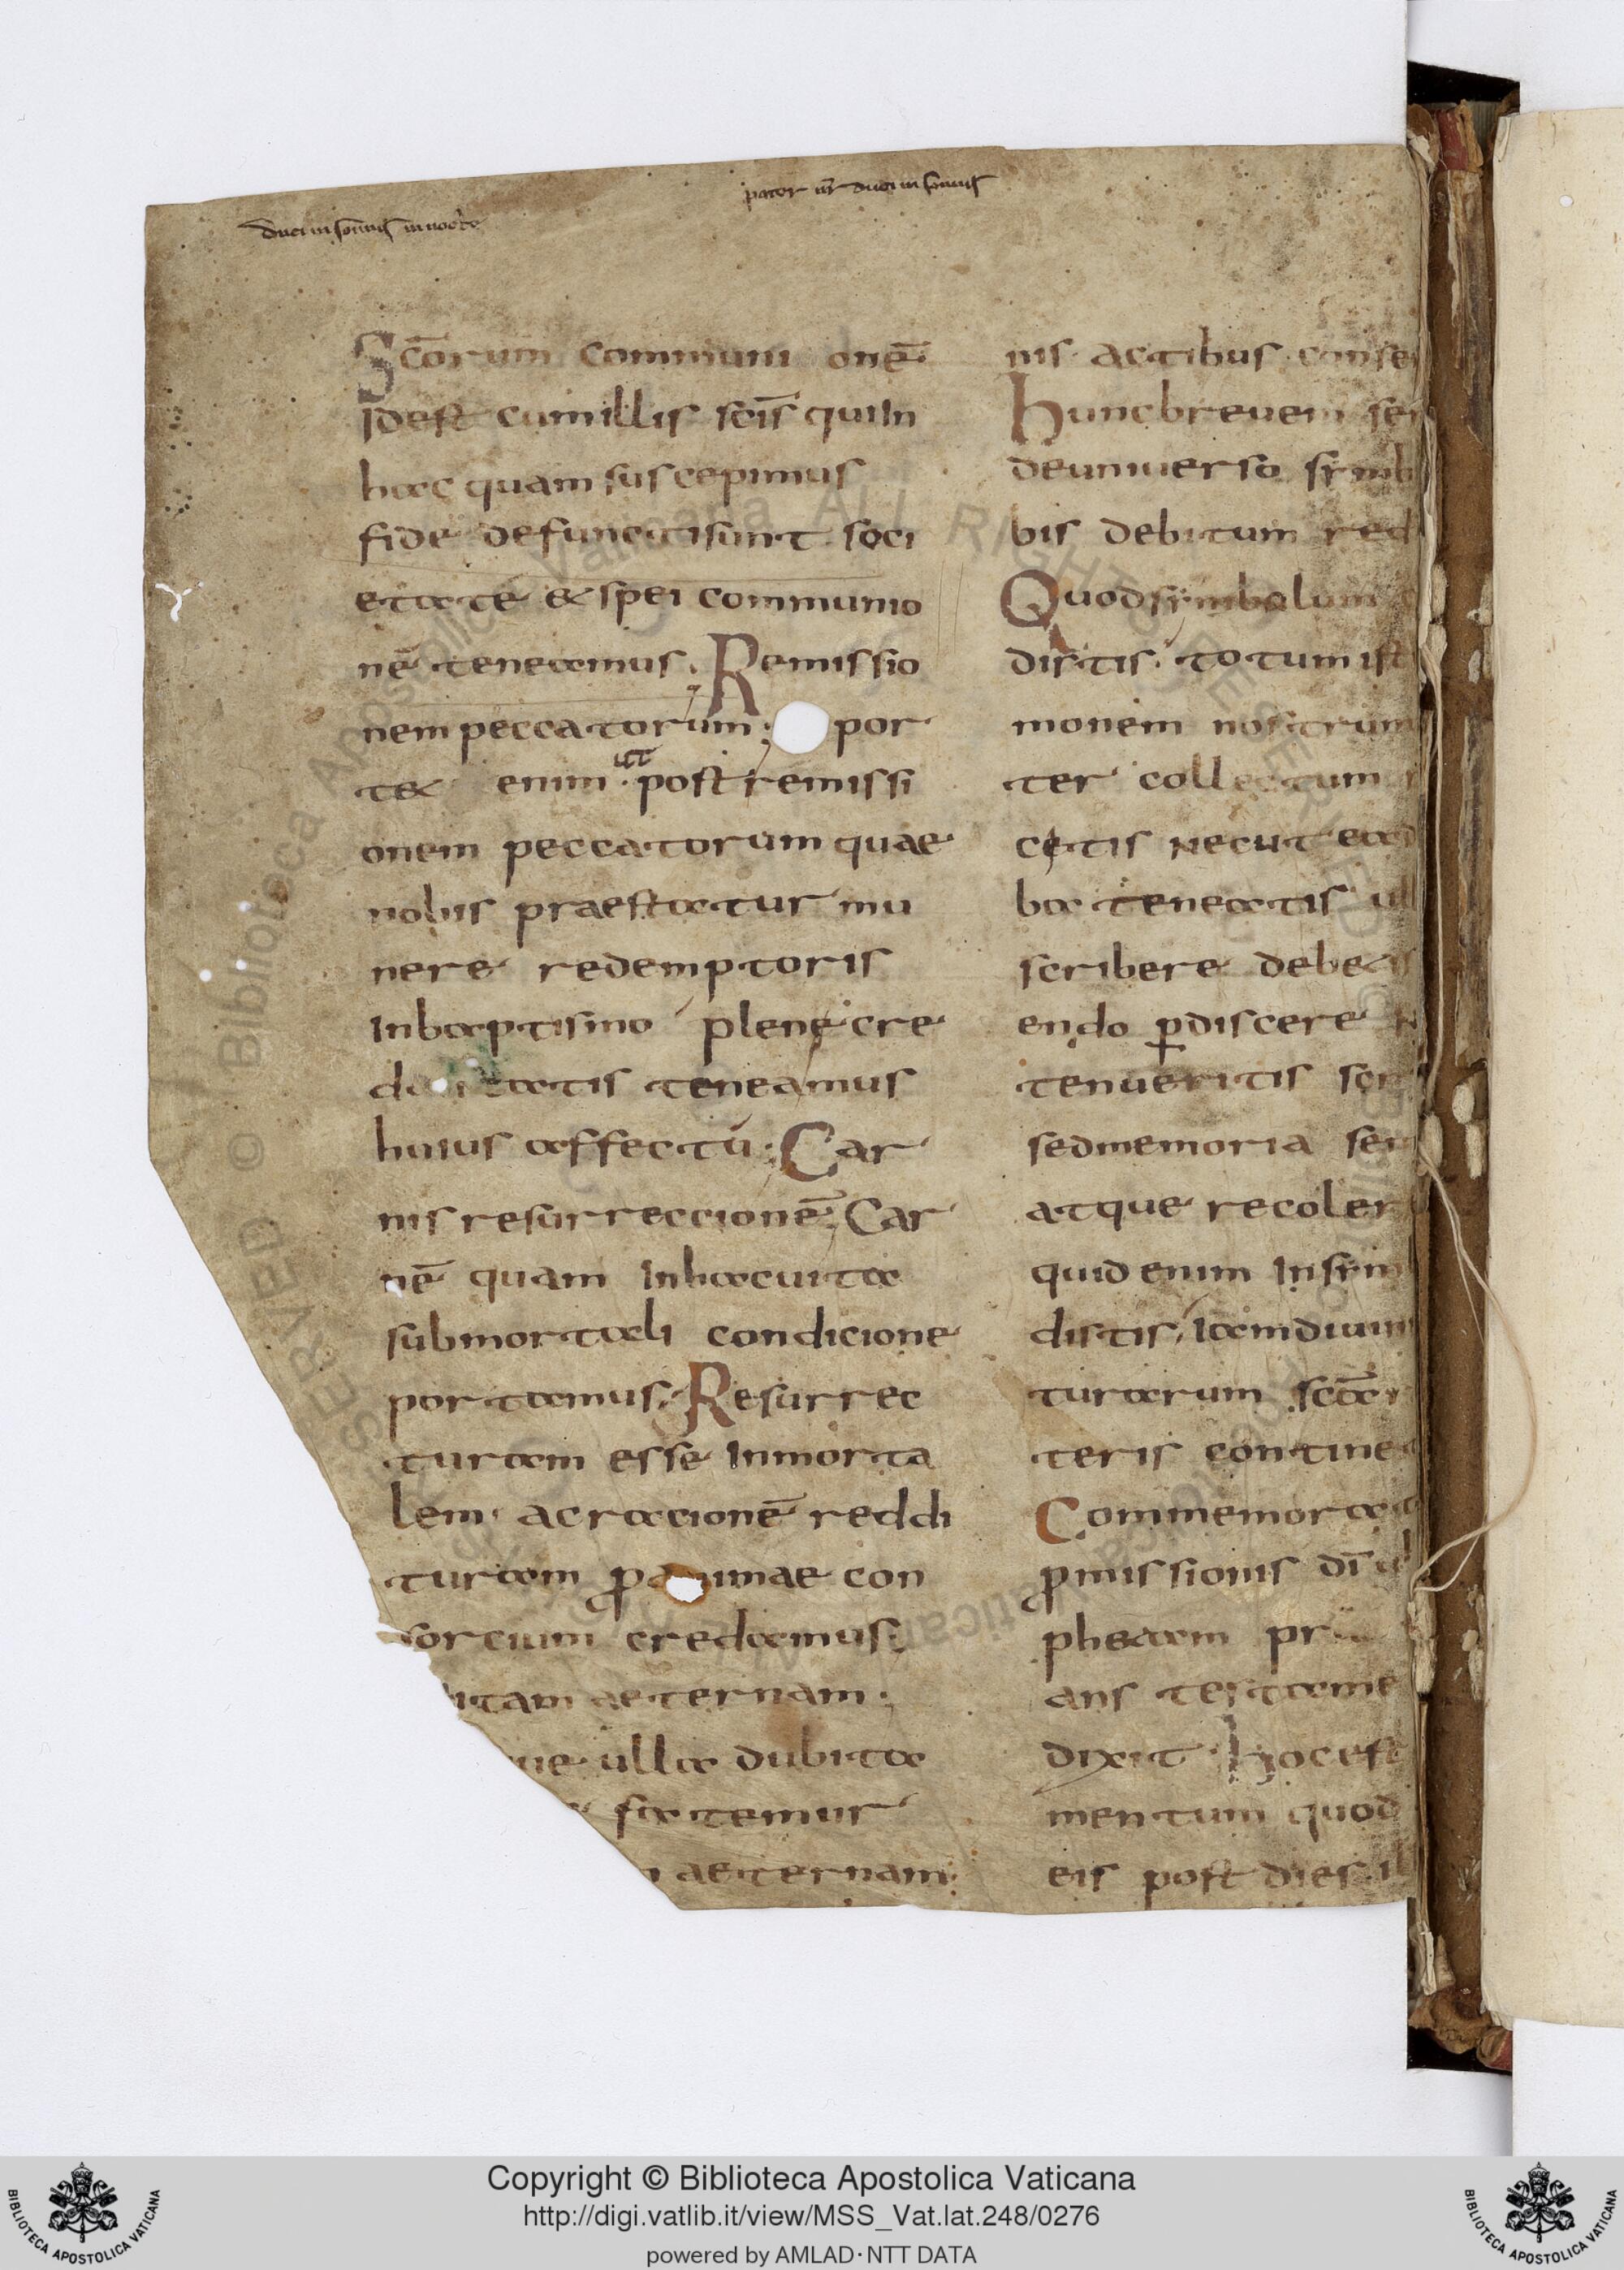 pater nr duci in somnis
duci in somnis in nocte
Scōrum communionē·
Idest cum illis scīs qui In
hac quam suscepimus
fide defuncti sunt soci
etate & spei communio
nē teneamus· Remissio
nem peccatorum; por
t& enim · ut post remissi
onem peccatorum quae
nobis praestatur mu
nere redemptoris
In baptismo plene cre
tis teneamus
huius affectū; Car
nis resurreccionē; Car
nē quam In hac uita
sub mortali condicione
portamus; Resurrec
turam esse Inmorta
lem· ac racionē reddi
turam pro animae con
sorcium credamus;
uitam aeternam;
ulla dubita
fatemur
aeternam;
nis· actibus· conse
Hunc breuem ser
de uniuerso symb
bis debitum red
Quod symbolum
distis· totum ist
monem nostrum
ter collectum
cetis Nec ut ea
ba teneatis ull
scribere debe
endo p̄discere N
tenueritis scr
sed memoria sem
atque recoler
quid enim In sym
distis, Iam diuin
turarum scār
teris contine
Commemora
promissionis dī ub
phetam pr
ans testame
dixit· hoc est
mentum quod
eis post dies· il
Copyright © Biblioteca Apostolica Vaticana
http://digi.vatlib.it/view/MSS_Vat.lat.248/0276
powered by AMLAD·NTT DATA
BIBLIOTECA APOSTOLICA VATICANA
BIBLIOTECA APOSTOLICA VATICANA